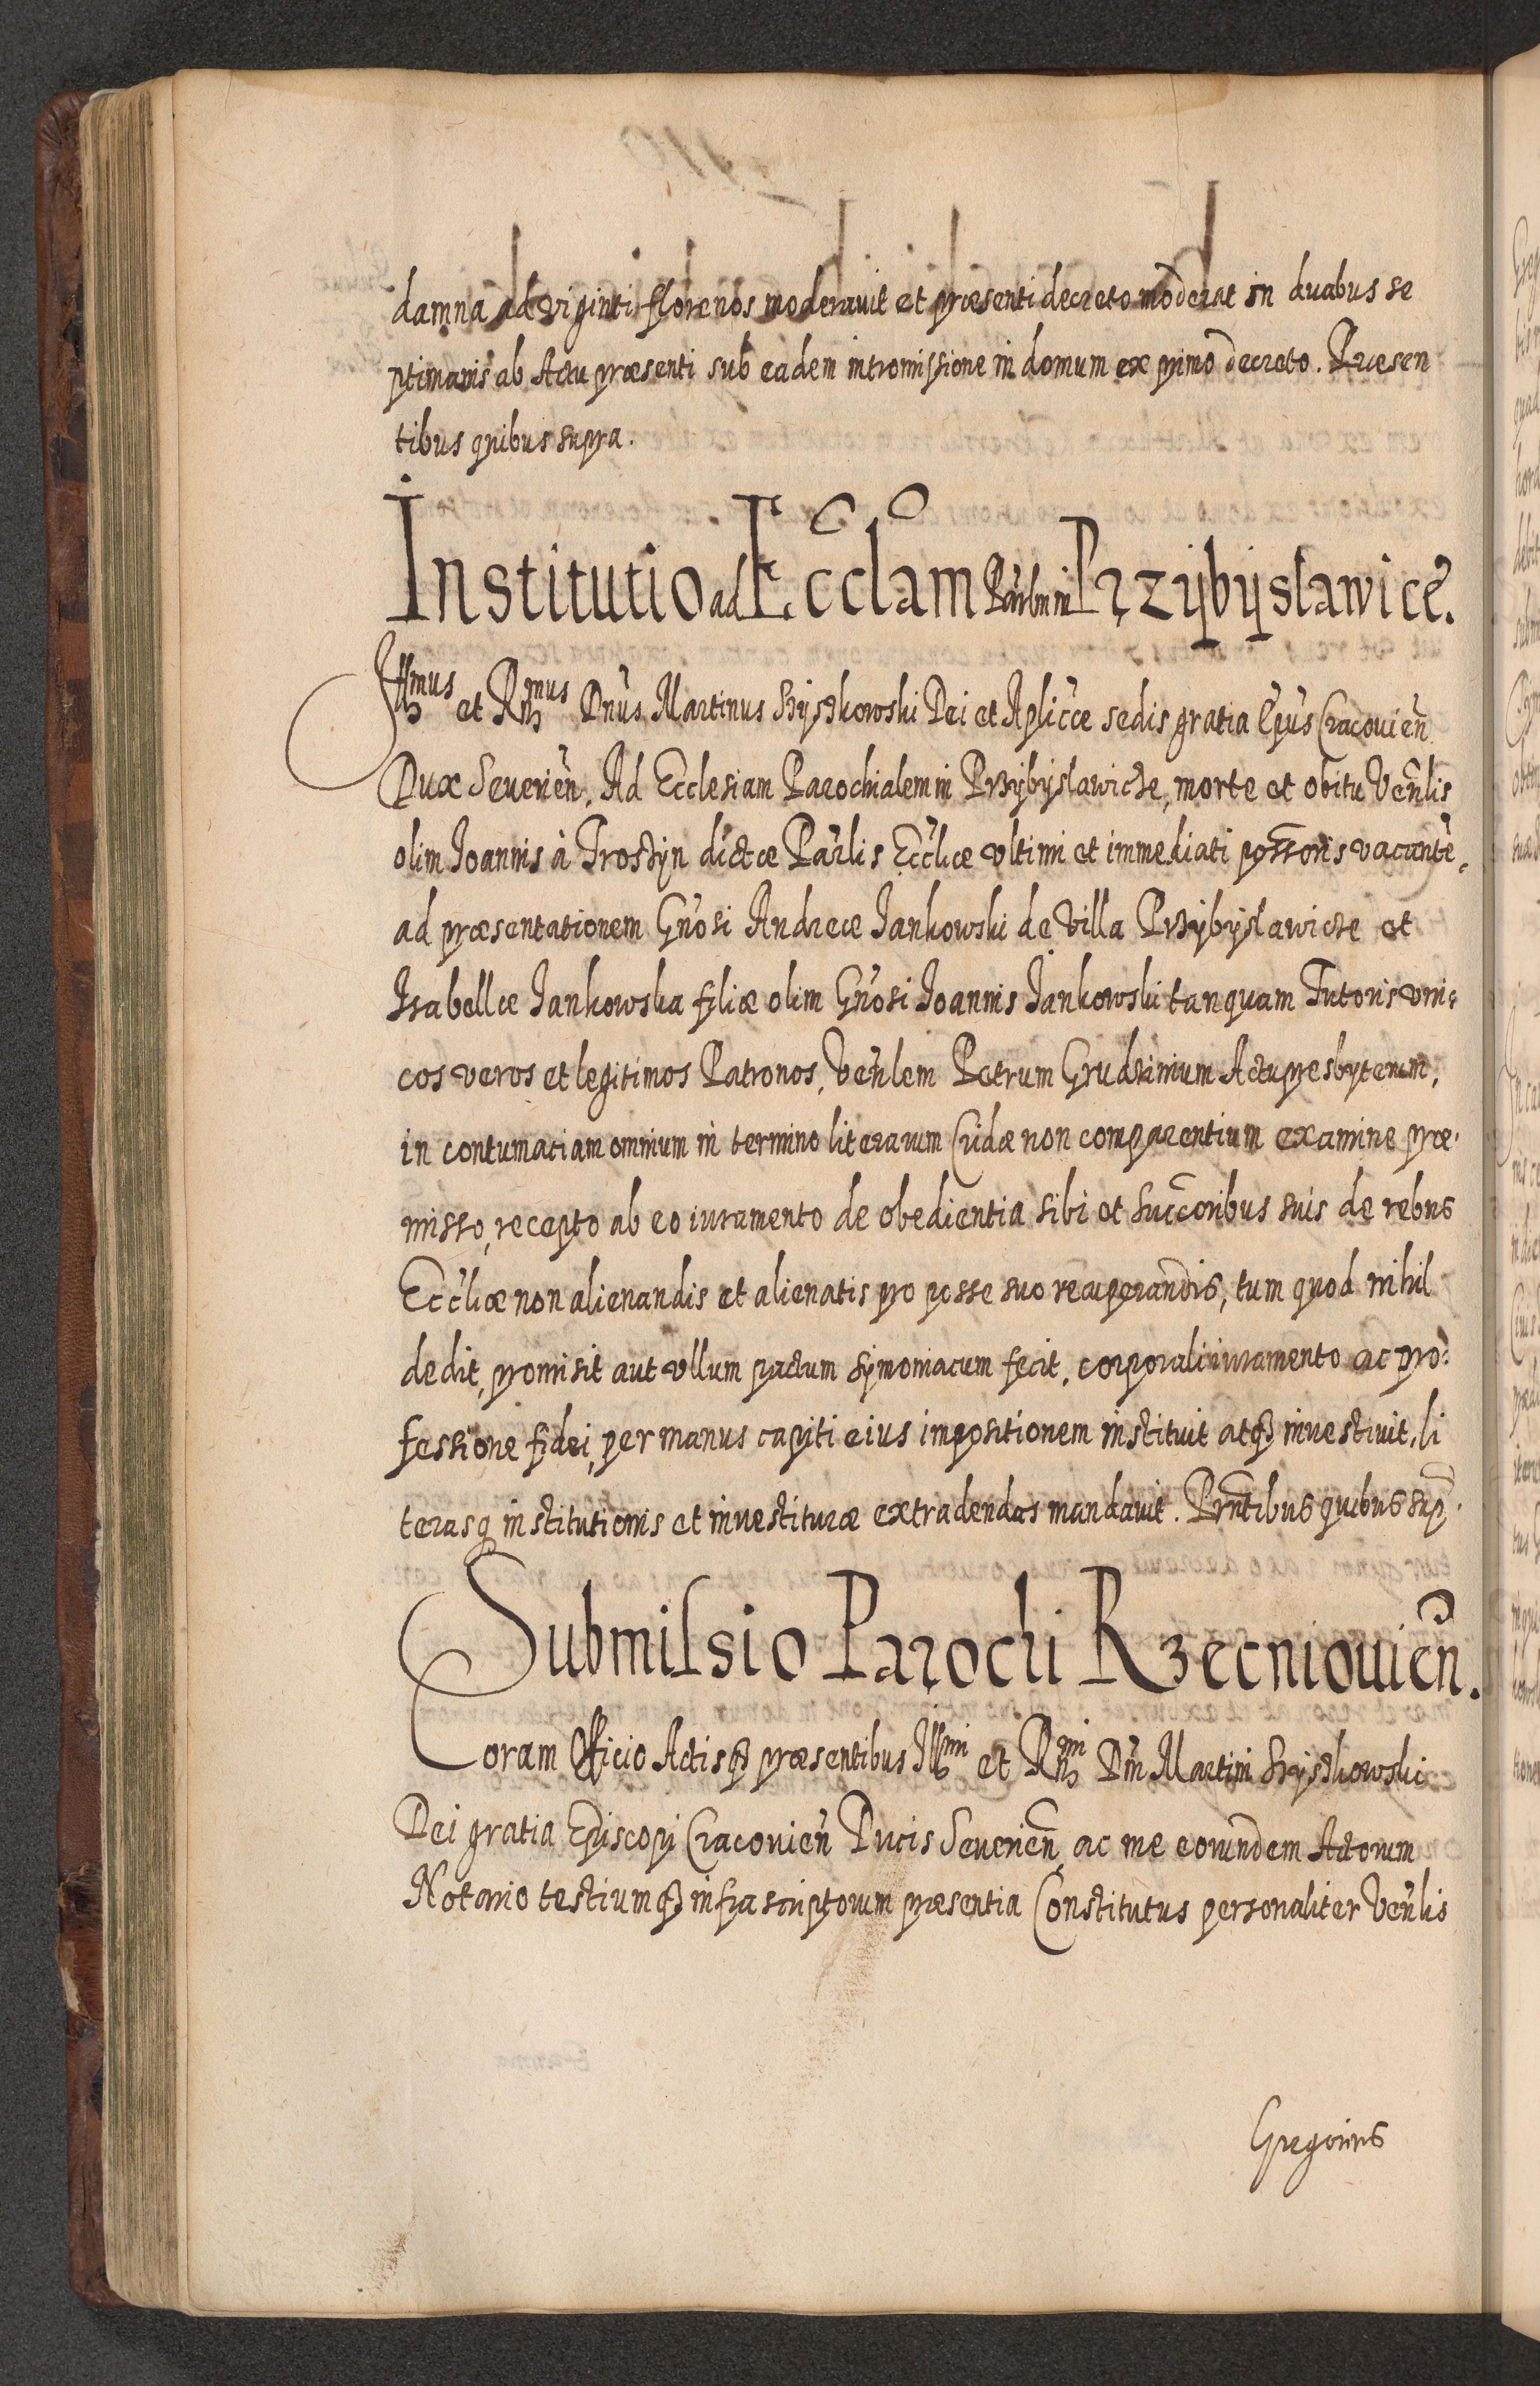 damna ad viginti florenos moderavit et præsenti decreto moderat in duabus se
ptimanis ab Actu præsenti sub eadem intromissione in domum ex primo decreto. Præsen
tibus quibus supra.
Institutio ad Ecclam Parlem in Przybyslawice.
Illmus et Rndmus Dnus Martinus Szyszkowski Dei et Aplicæ sedis gratia Epus Cracovien
Dux Severien. Ad Ecclesiam Parochialem in Przybyslawicze, morte et obitu Venlis
olim Joannis à Trostyn dictæ Parlis Eccliæ vltimi et immediati possoris vacante,
ad præsentationem Gnosi Andreæ Jankowski de Villa Przybyslawicze et
Isabellæ Jankowska filiæ olim Gnosi Joannis Jankowski tanquam Tutoris vni-
cos veros et legitimos Patronos, Venlem Petrum Grudzinium Actu presbyterum,
in contumaciam omnium in termino literarum Cridæ non comparentium examine præ-
misso, recepto ab eo iuramento de obedientia sibi et succoribus suis de rebus
Eccliæ non alienandis et alienatis pro posse suo recuperandis, tum quod nihil
dedit, promisit aut vllum pactum symoniacum fecit, corporali iuramento ac pro-
fessione fidei, per manus capiti eius impositionem instituit atq investivit, li
terasq institutionis et investituræ extradendas mandavit. Prntibus quibus sup.
Submissio Parochi Rzecniovien.
Coram Officio Actisq præsentibus Illmi et Rndmi Dni Martini Szyszkowski
Dei gratia Episcopi Cracovien Ducis Severien, ac me eorundem Actorum
Notario testiumq infrascriptorum præsentia Constitutus personaliter Venlis
Gregorius